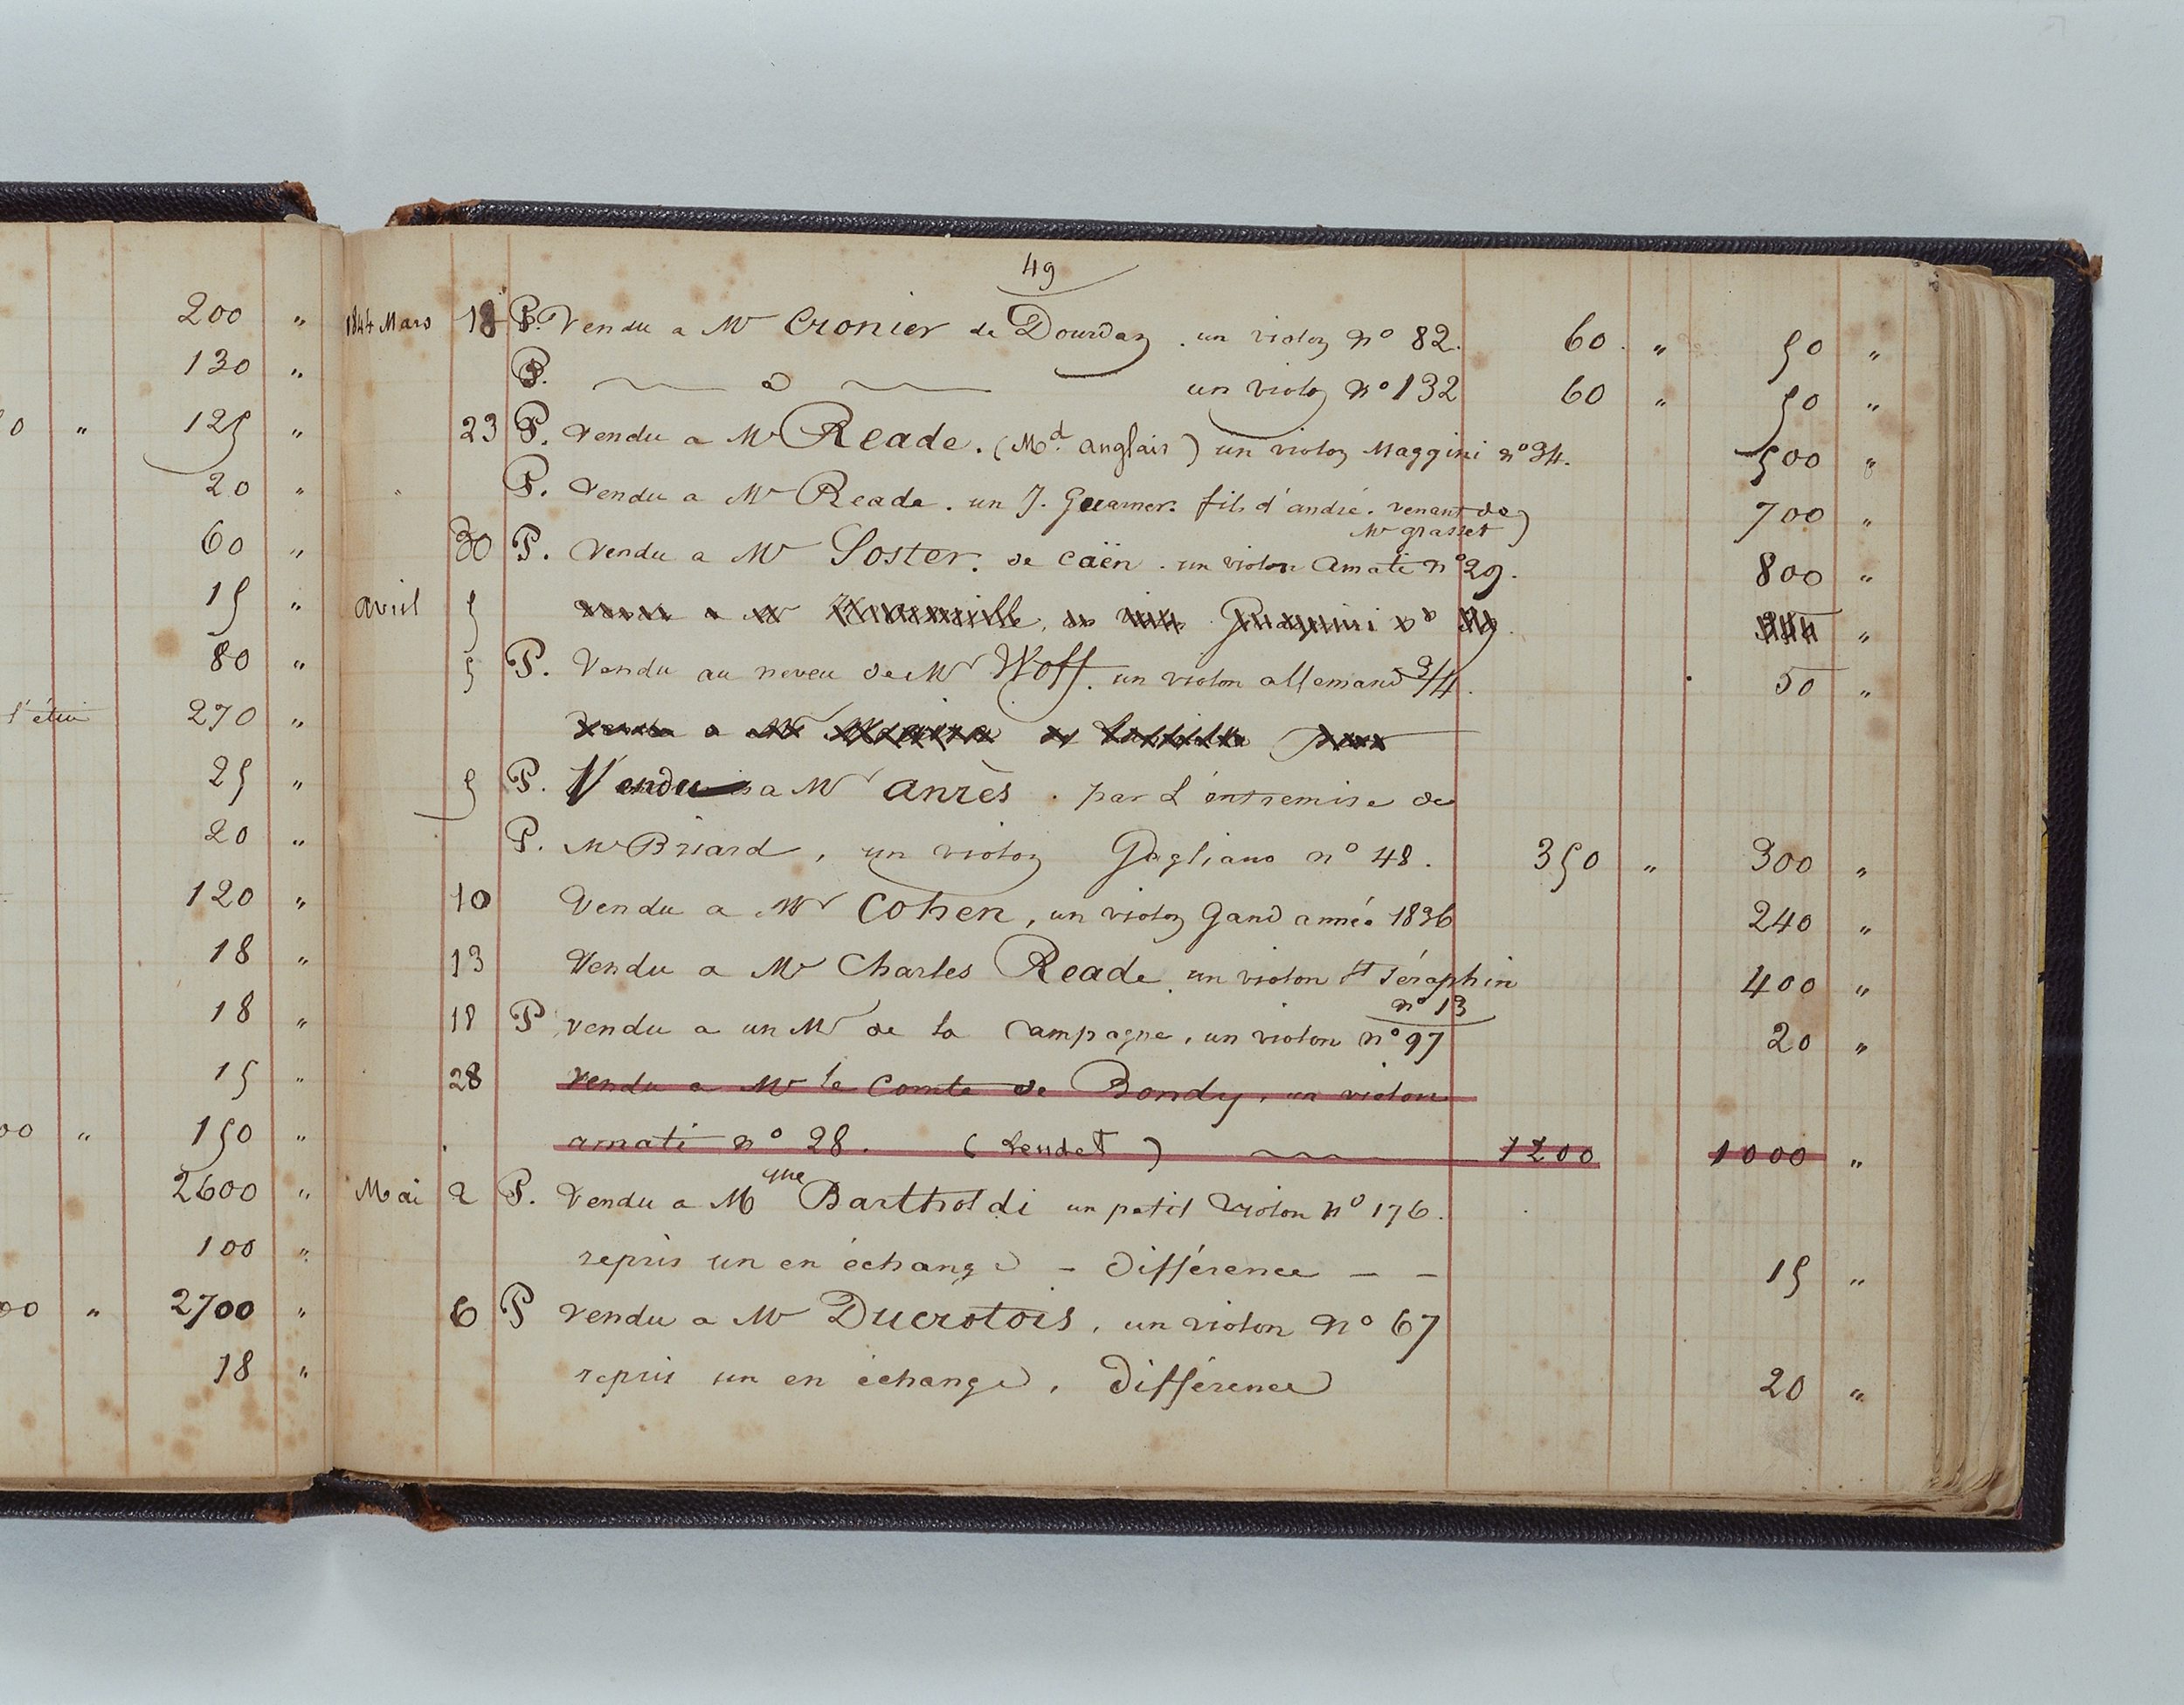 200 "
130 "
0 " 125 "
20 "
60 "
15 "
80 "
l'étui 270 "
25 "
20 "
120 "
18 "
18 "
15 "
00 " 150 "
2600 "
100 "
00 " 2700 "
18 "
49
1844 Mars 18 P. Vendu a Mr Cronier de Dourdan . un violon No 82. 60 " 50 "
P. un violon No 132 60 " 50 "
23 P. Vendu a Mr Reade. (Md. anglais) un violon Maggini no 34. 500 "
P. Vendu a Mr Reade. un J. Guarner. fils d'andré. venant de 700 "
Mr grasset)
30 P. Vendu a Mr Soster. de Caën. un violon Amati no 29. 800 "
avril 5
5 P. Vendu au neveu de Mr Woff. un violon allemand 3/4. 50 "
5 P. Vendu a Mr anrès. par L'entremise de
P. Mr Briard, un violon Gagliano no 48. 350 " 300 "
10 Vendu a Mr Cohen, un violon Gand année 1836 240 "
13 Vendu a Mr Charles Reade. un violon St Séraphin 400 "
no 13
18 P vendu a un Mr de la Campagne, un violon no 97 20 "
28 Vendu a Mr le Comte de Bondy, un violon
amati no 28. ( ) 1200 1000 "
Mai 2 P. Vendu a Mme Bartholdi un petit Violon No 176.
repris un en échange – Différence – – 15 "
6 P Vendu a Mr Ducrotois, un violon No 67
repris un en échange, Différence 20 "